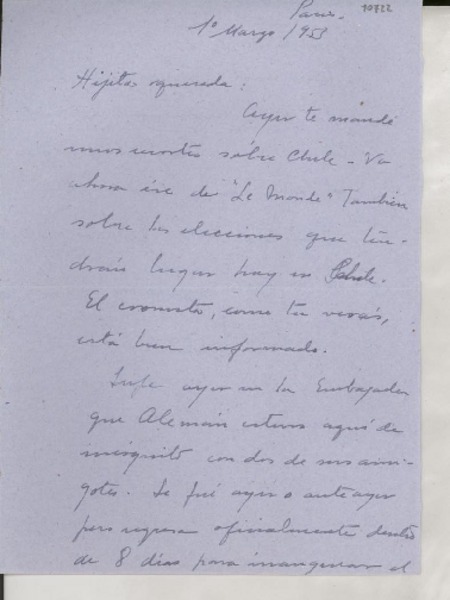 10722
Paris.
1º Marzo/1953
Hijita querida:
Ayer te mandé
unos recortes sobre Chile - Va
ahora ése de "Le Monde" También
sobre las elecciones que ten-
drán lugar hoy en Chile.
El cronista, como tu verás,
está bien informado.
Supe ayer en la Embajada
que Alemán estuvo aquí de
incógnito con dos de sus ami-
gotes. Se fué ayer o anteayer
pero regresa oficialmente dentro
de 8 días para inaugurar el